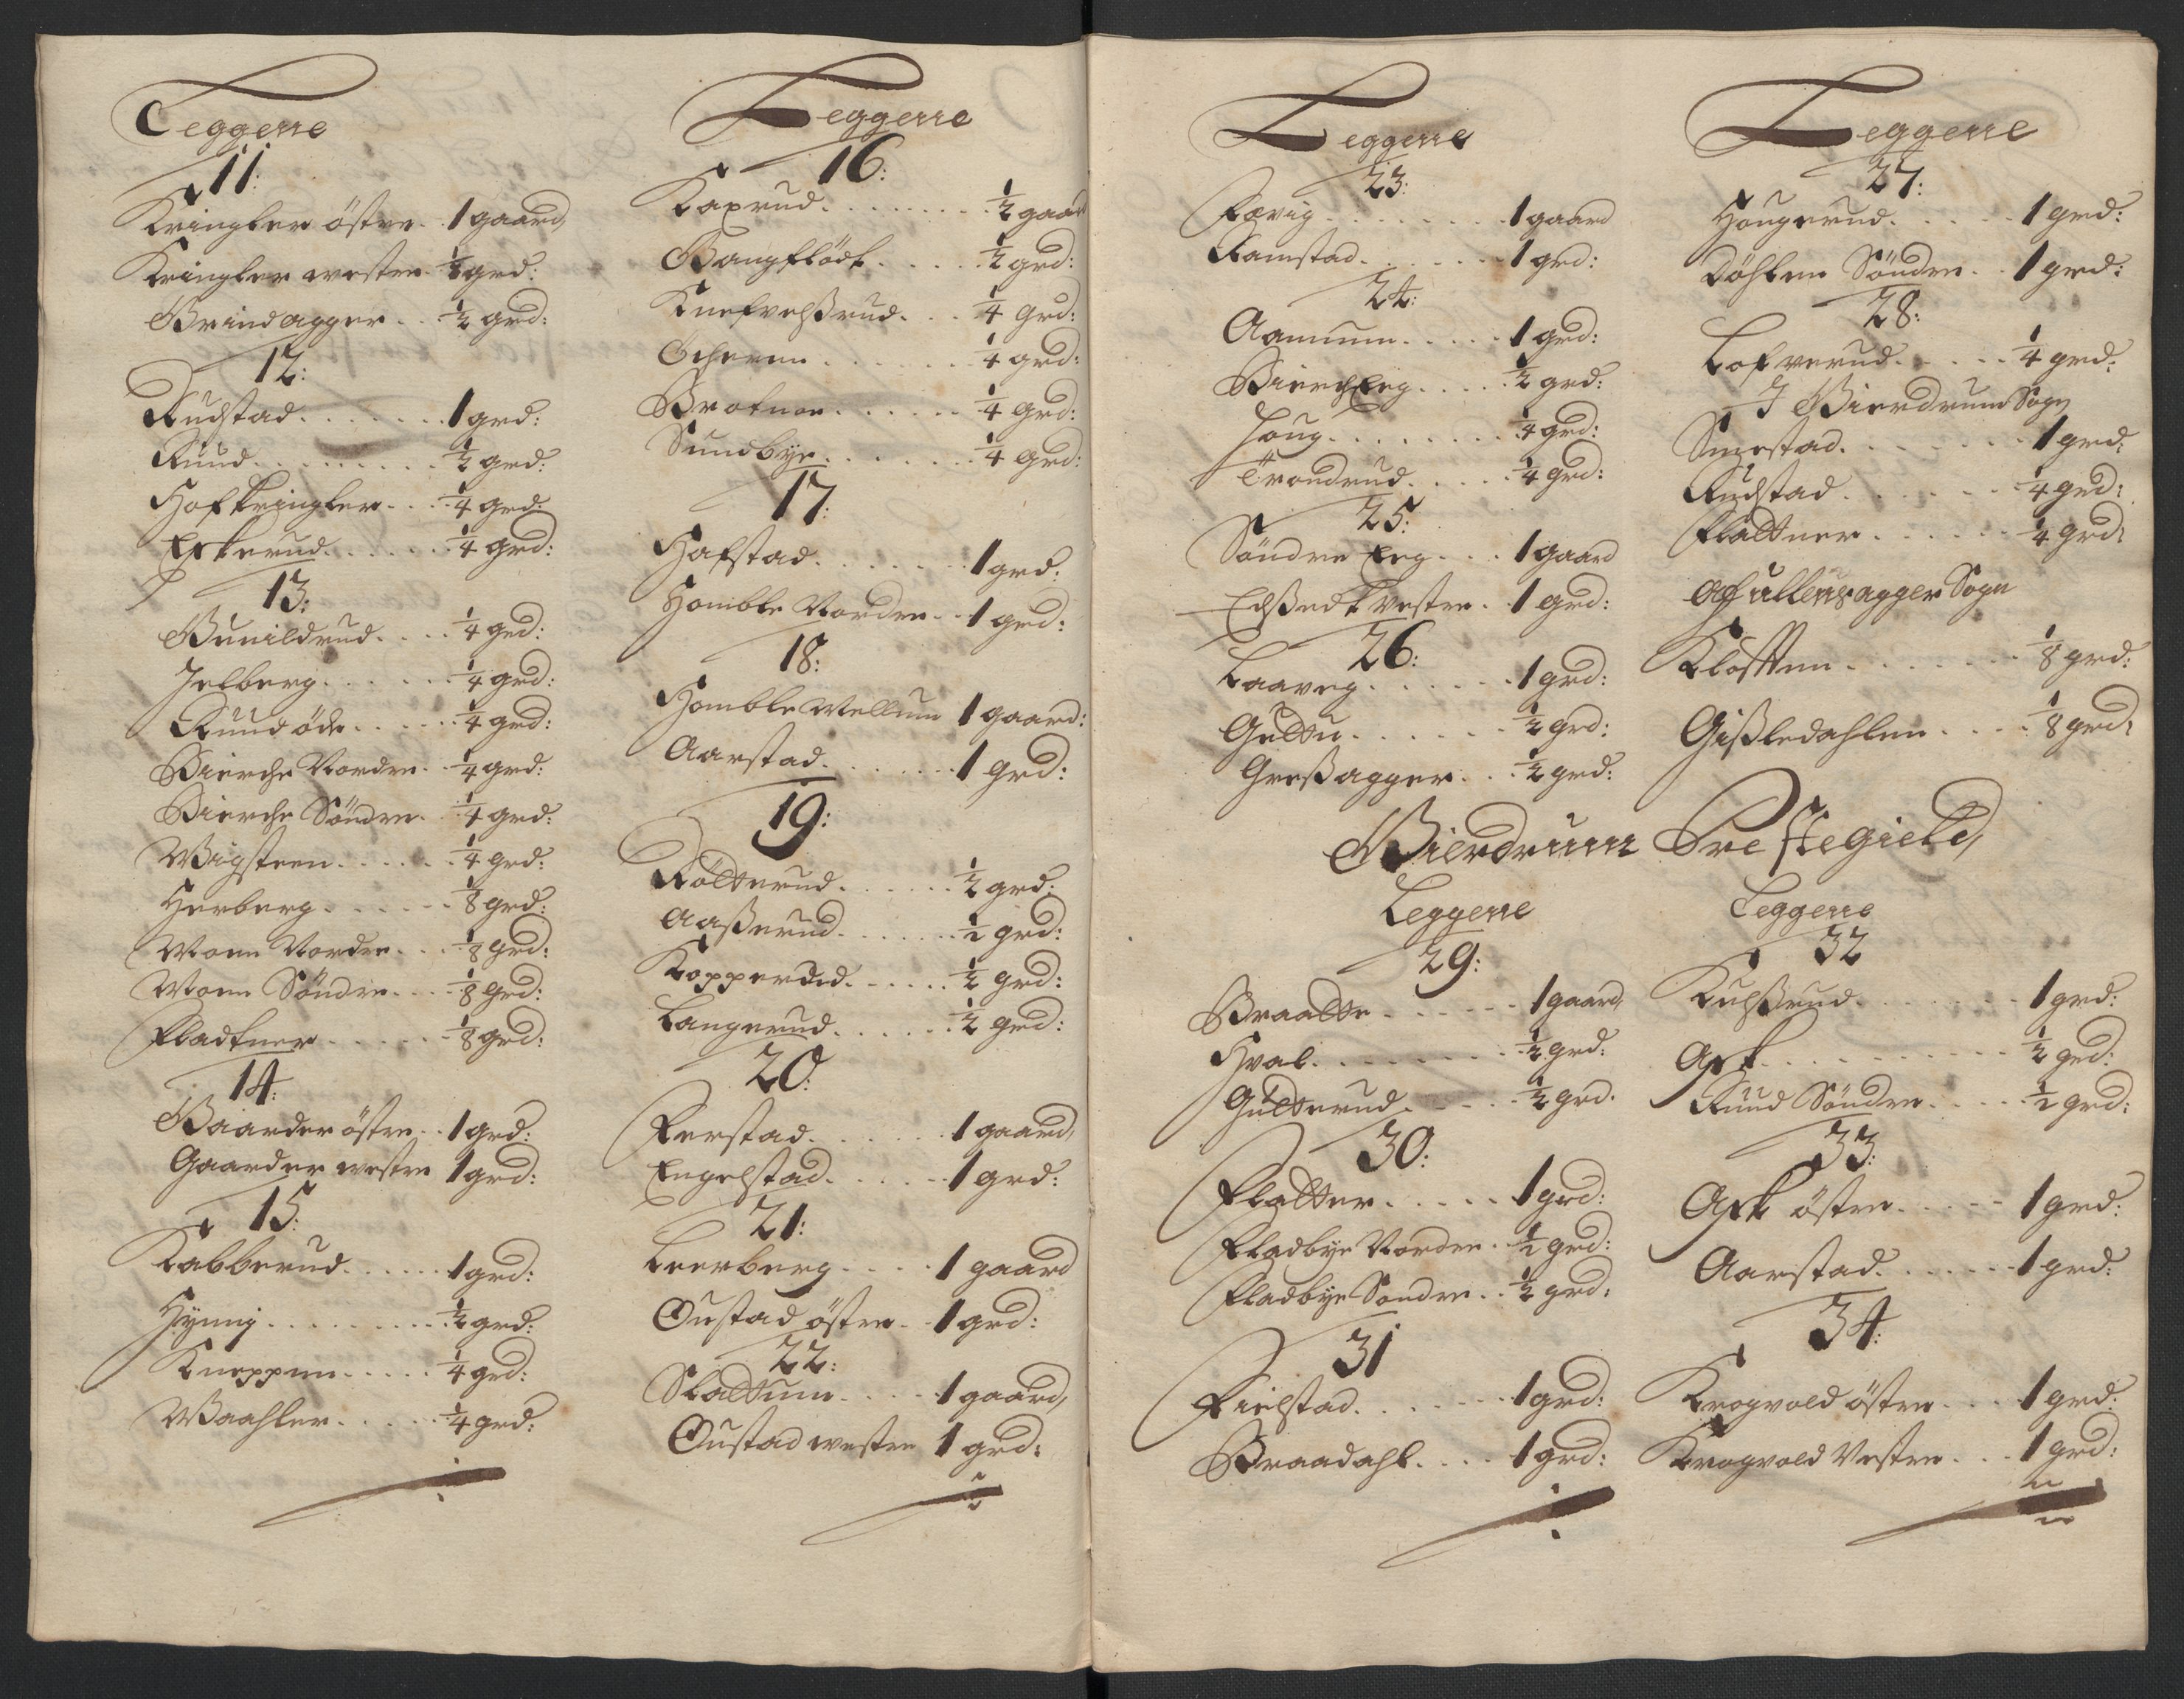 Leggerne
11:
Kringler östre . . 1 gaard,
Kringler westre . ½ grd:
Brindagger . . ½ grd:
12:
Rudstad . . . . . . . 1 grd:
Ruud . . . . . . . . . ½ grd:
Hofkringler . . . ¼ grd:
Eskerud . . . . . . ¼ grd:
13:
Gunildrud . . . . ¼ grd:
Jelberg . . . . . . ¼ grd:
Ruud öde . . . . . ¼ grd:
Bierche Nordre . . ¼ grd:
Bierche Söndre . ¼ grd:
Wigsteen . . . . . ¼ grd:
Herberg . . . . . . ⅛ grd:
Moen Nordre . . . ⅛ grd:
Moen Söndre . . . ⅛ grd:
Fladtner . . . . . . ⅛ grd:
14:
Gaarder östre . . 1 grd:
Gaarder westre 1 grd:
15:
Kabberud . . . . . 1 grd:
Hynnj . . . . . . . . . ½ grd:
Kneppen . . . . . ¼ grd:
Waahler . . . . . ¼ grd:
Leggerne
16:
Kaxrud . . . . . . . . ½ gaar
Bangflödt . . . . . ½ grd:
Knefvelßrud . . . ¼ grd:
Scheren . . . . . . . ¼ grd:
Brotner . . . . . . ¼ grd:
Sundbye . . . . . . . ¼ grd:
17:
Hafstad . . . . . . . 1 grd:
Homble Nordre . . 1 grd:
18:
Homble Mellum 1 gaard:
Aarstad . . . . . . . 1 grd:
19:
Rölterud . . . . . . ½ grd:
Aaßerud . . . . . . . ½ grd:
Kopperud . . . . . . ½ grd:
Langerud . . . . . . ½ grd:
20:
Ferstad . . . . . . . 1 gaard,
Engelstad . . . . . 1 grd:
21:
Leerberg . . . . 1 gaard
Oustad östre . . 1 grd:
22:
Slattum . . . . 1 gaard,
Oustad westre 1 grd:
Leggerne
23:
Farvig . . . . . . . . 1 gaard
Ramstad . . . . . . . 1 grd:
24:
Aamum . . . . . 1 grd:
BierchEeg . . . . ½ grd:
Houg . . . . . . . . ¼ grd:
Trondrud . . . . . ¼ grd:
25:
Söndre Eeg . . . 1 gaard
Edßedt Vestre . 1 grd:
26:
Laaveg . . . . . . 1 grd:
Guttu . . . . . . . ½ grd:
Greßagger . . . ½ grd:
Leggerne
27:
Hougerud . . . . . 1 grd:
Döhlen Söndre . . 1 grd:
28:
Lofverud . . . . . ¼ grd:
I Gierdrum Sogn
Smestad . . . . . . . 1 grd:
Rudstad . . . . . . ¼ grd:
Flattner . . . . . . ¼ grd:
Af ullensagger Sogn
Klöfften . . . . . . . ⅛ grd:
Gißledahlen . . . . ⅛ grd:
Gierdrum Prestegield,
Leggerne
29:
Braatte . . . . . 1 gaard,
Hval . . . . . . . . ½ grd:
Gulterud . . . . ½ grd.
30:
Flatter . . . . . 1 grd:
Fladbye Nordre . ½ grd:
Fladbye Söndre . . ½ grd:
31
Fielstad . . . . . . . 1 grd:
Braadahl . . . . 1 grd:
Leggerne
32
Kulßrud . . . . . . . 1 grd:
Ask . . . . . . . . . . ½ grd:
Ruud Söndre . . . . . ½ grd:
33:
Ask östre . . . . . 1 grd:
Aarstad . . . . . . . 1 grd:
34:
Krogvold östre . . . 1 grd:
Krogvold Vestre . . . 1 grd: